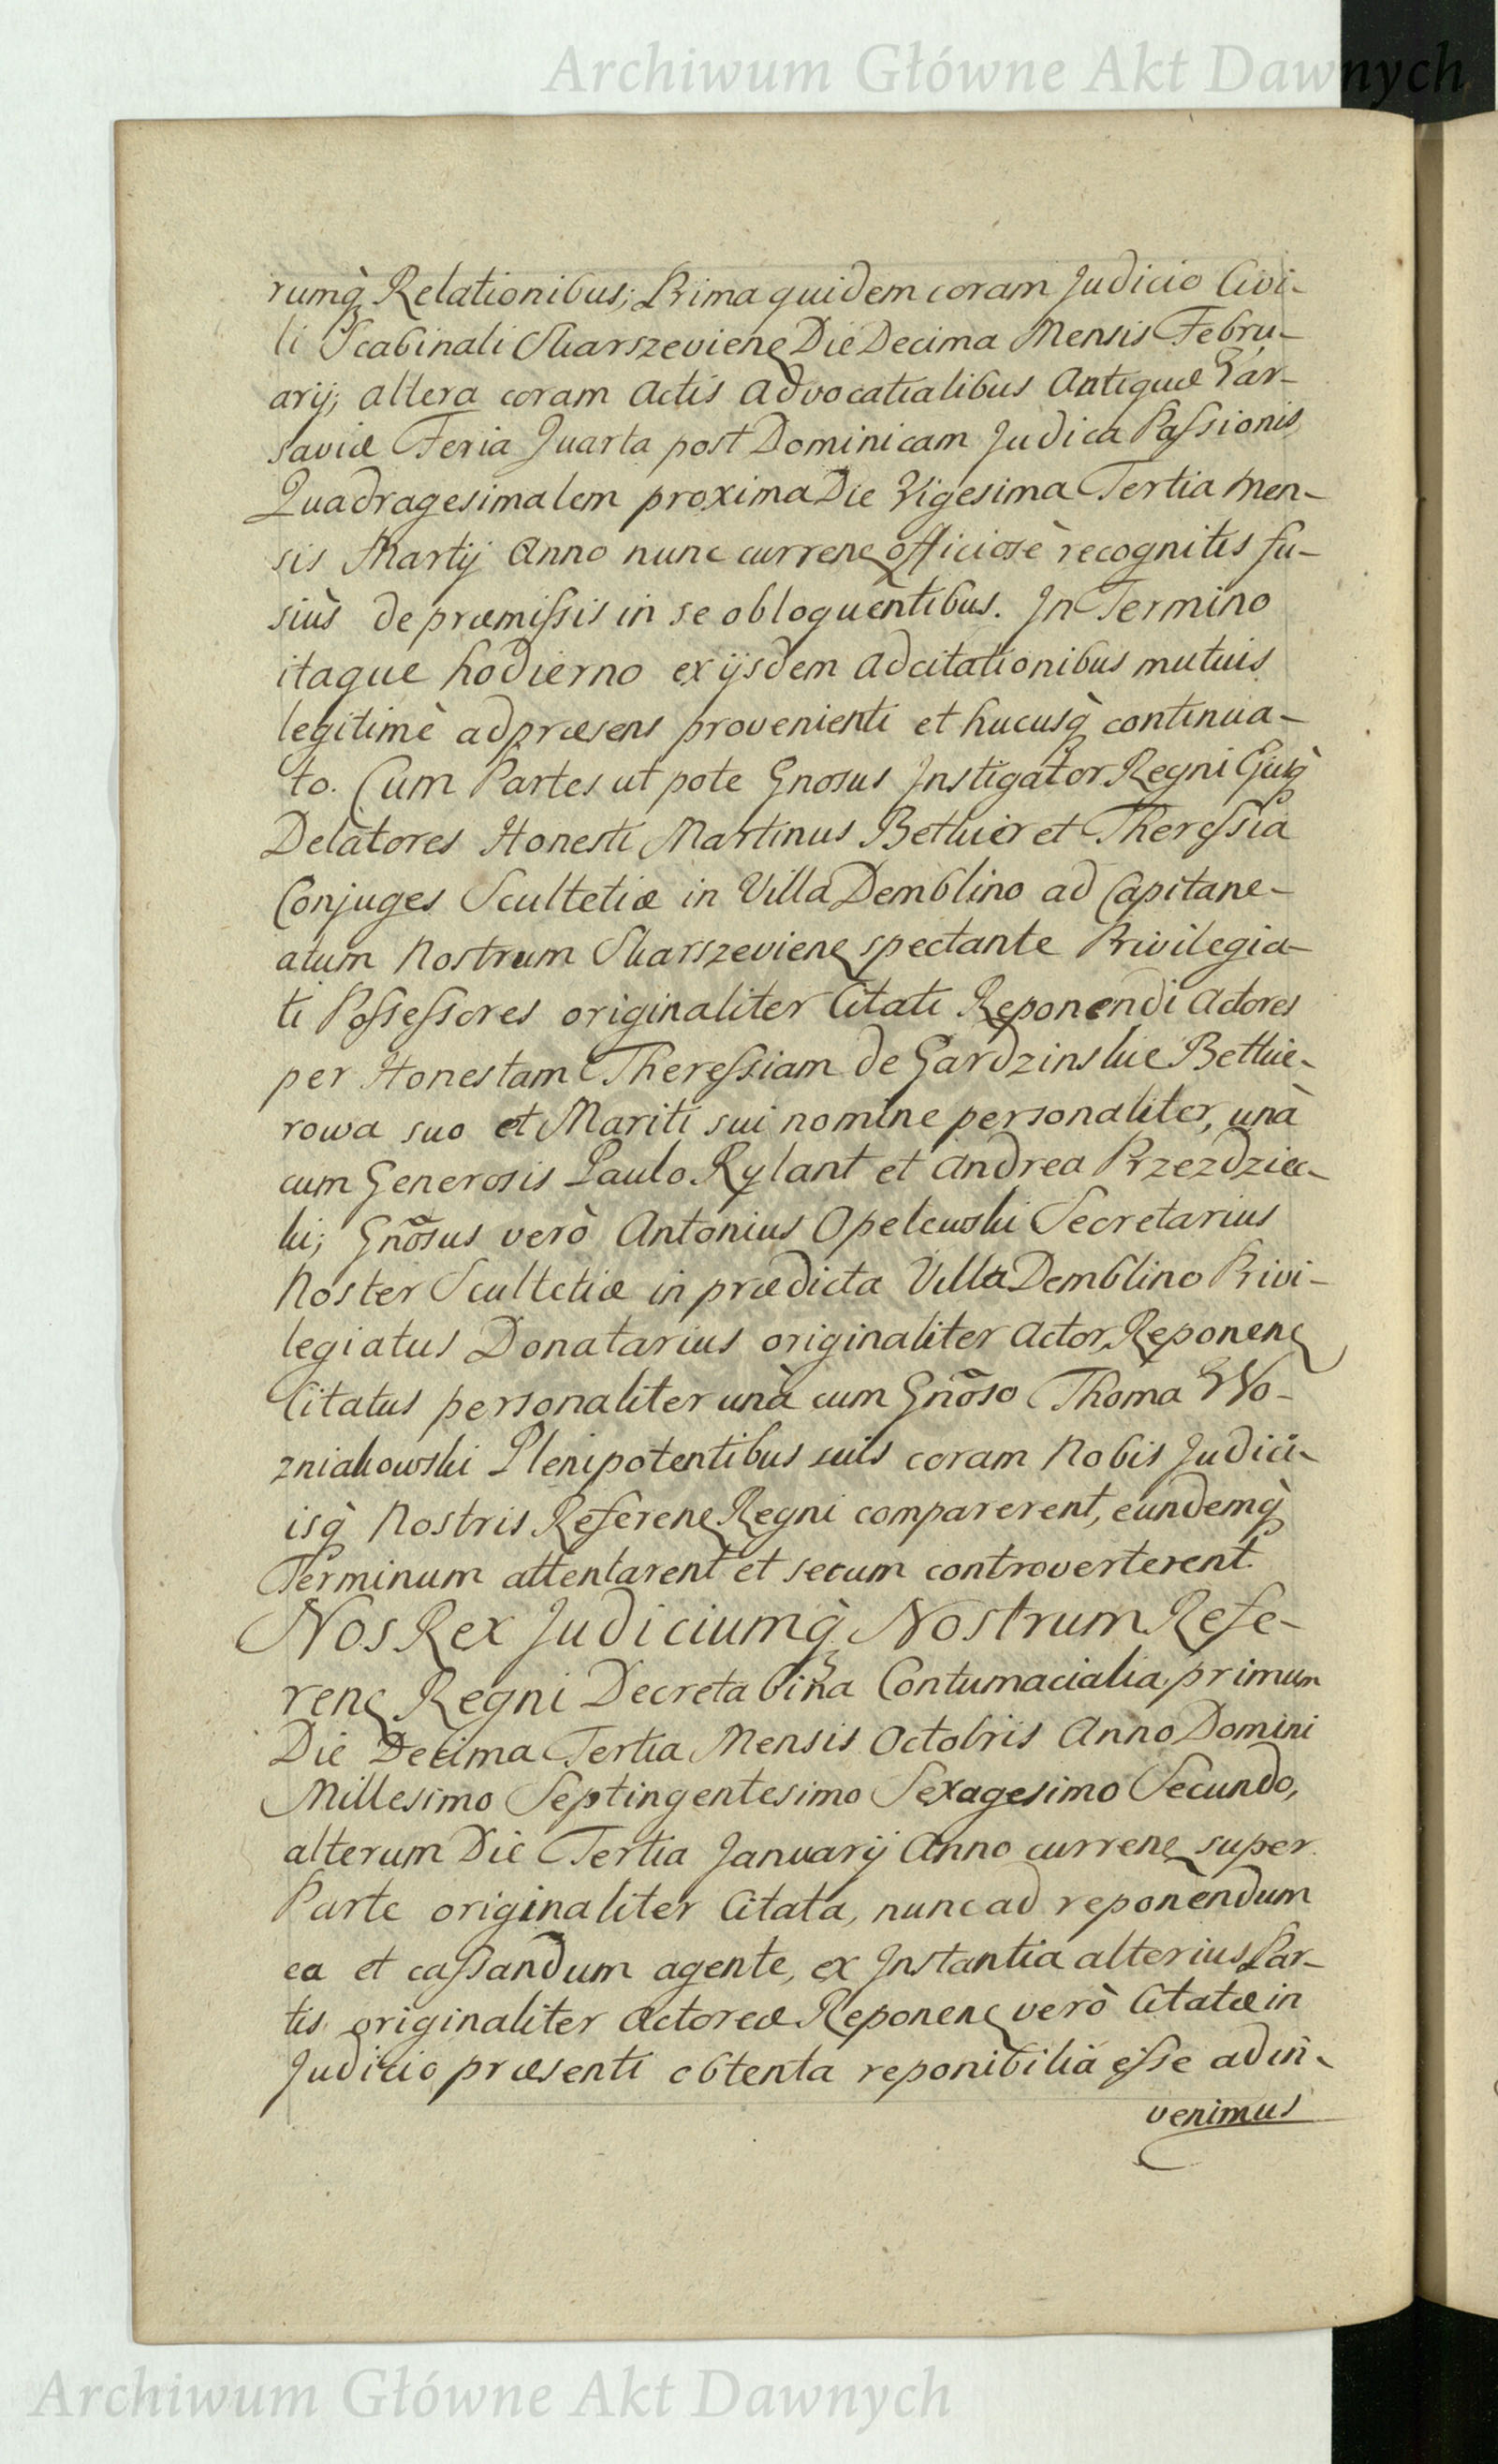 Archiwum Główne Akt Dawnych
rumq̀ Relationibus; Prima quidem coram Judicio Civi-
li Scabinali Skarszeviens Die Decima Mensis Febru-
arij; altera coram Actis Advocatialibus Antiquæ Var-
saviæ Feria Quarta post Dominicam Judica Passionis
Quadragesimalem proxima Die Vigesima Tertia Men-
sis Martij Anno nunc currenc officiosè recognitis fu-
siùs de præmissis in se obloquèntibus. In Termino
itaque hodierno ex ijsdem adcitationibus mutuis
legitimè ad præsens provenienti et hucusq̀ continua-
to. Cum Partes ut pote Gnosus Instigator Regni Ejusq̀
Delatores Honesti Martinus Betkier et Theressia
Conjuges Scultetiæ in Villa Demblino ad Capitane-
atum Nostrum Skarszeviens spectante Privilegia-
ti Possessores originaliter Citati Reponendi Actores
per Honestam Theressiam de Gardzinskie Betkie-
rowa suo et Mariti sui nomine personaliter, unà
cum Generosis Paulo Rylant et Andrea Przezdziec-
ki; Gnõsus verò Antonius Opelewski Secretarius
Noster Scultetiæ in prædicta Villa Demblino Privi-
legiatus Donatarius originaliter Actor, Reponenc
Citatus personaliter unà cum Gnõso Thoma Wo-
zniakowski Plenipotentibus suis coram Nobis Judici-
isq̀ Nostris Referenc Regni comparerent, eundemq̀
Terminum attentarent et secum controverterent.
Nos Rex Judiciumq̀ Nostrum Refe-
renc Regni Decreta bina Contumacialia, primum
Die Decima Tertia Mensis Octobris Anno Domini
Millesimo Septingentesimo Sexagesimo Secundo,
alterum Die Tertia Januarij Anno currenc super
Parte originaliter Citata, nunc ad reponèndum
ea et cassandum agente, ex Instantia alterius Par-
tis originaliter Actoreæ Reponenc verò Citatæ in
Judicio præsenti obtenta reponibilia esse adin-
venimus
Archiwum Główne Akt Dawnych